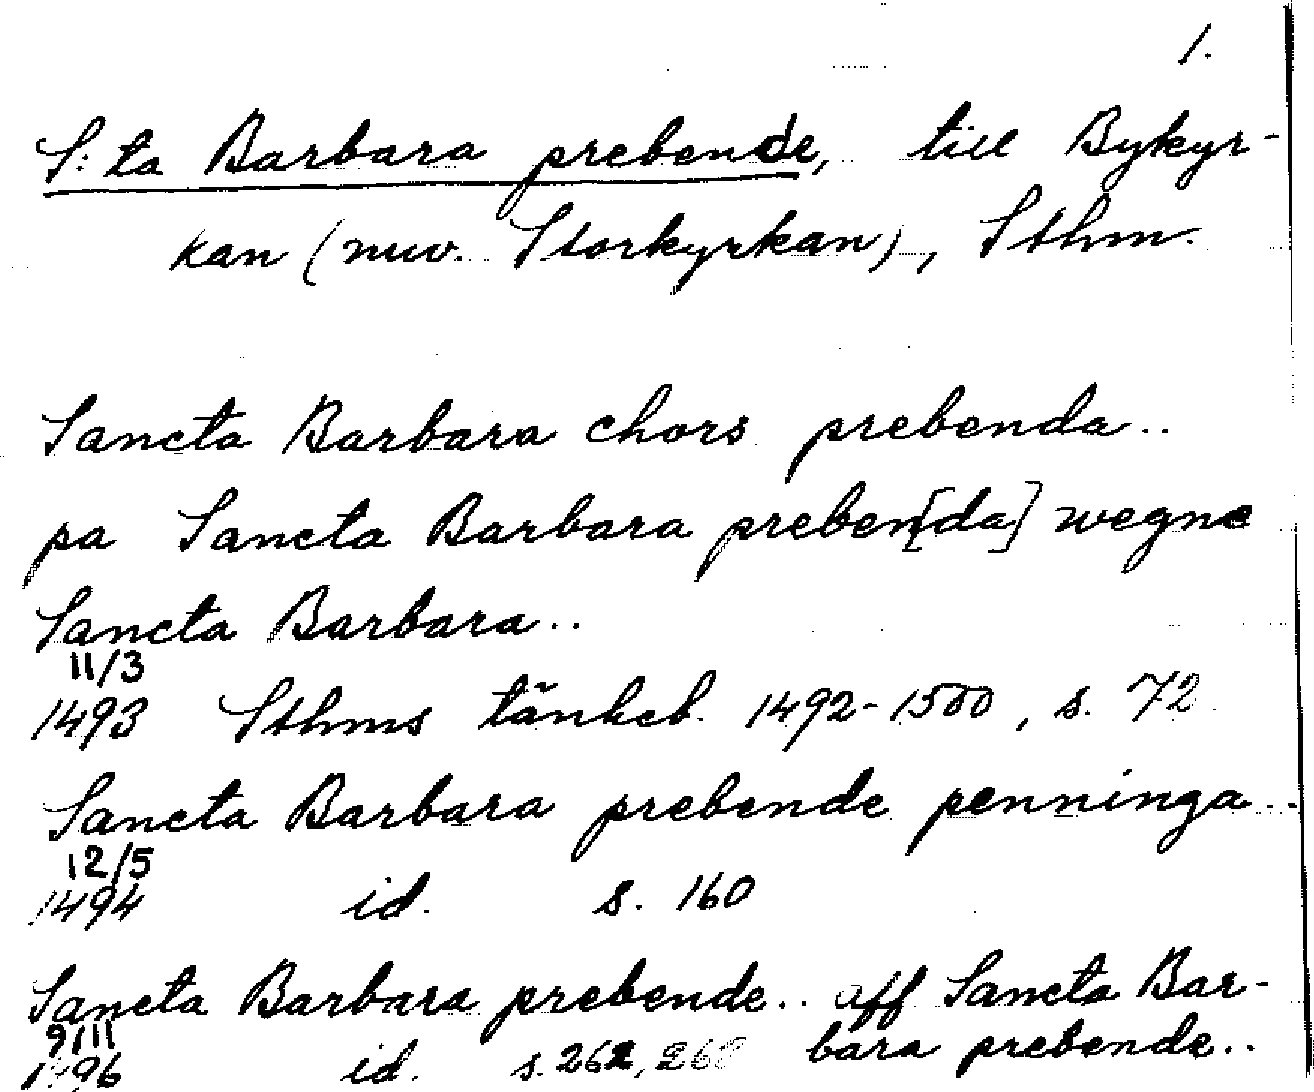 1.
S:ta Barbara prebende, till Bykyr-
kan (nuv. Storkyrkan), Sthm.
Sancta Barbara chors prebenda..
pa Sancta Barbara preben[da] wegne
Sancta Barbara..
11/3
1493 Sthms tänkeb. 1492-1500, s. 72
Sancta Barbara prebende penninga..
12/5
1494 id. s. 160
Sancta Barbara prebende.. aff Sancta Bar-
bara prebende..
9/11
1496 id. s. 262, 268